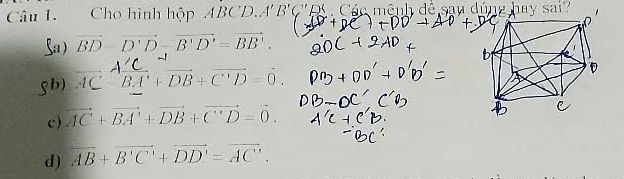 Câu 1. Cho hình hộp ABCD.A'B'C'D'. Các mệnh đề sau đúng hay sai?
Sa) BD - D'D - B'D' = BB'.
A'C
Sb) AC - BA' + DB + C'D = 0.
c) AC + BA' + DB + C'D = 0.
d) AB + B'C' + DD' = AC'.
+ DD' + AD +
2DC + 2AD +
DB + DD' + D'B' =
DB - DC' C'B
A'C + C'B.
- BC'